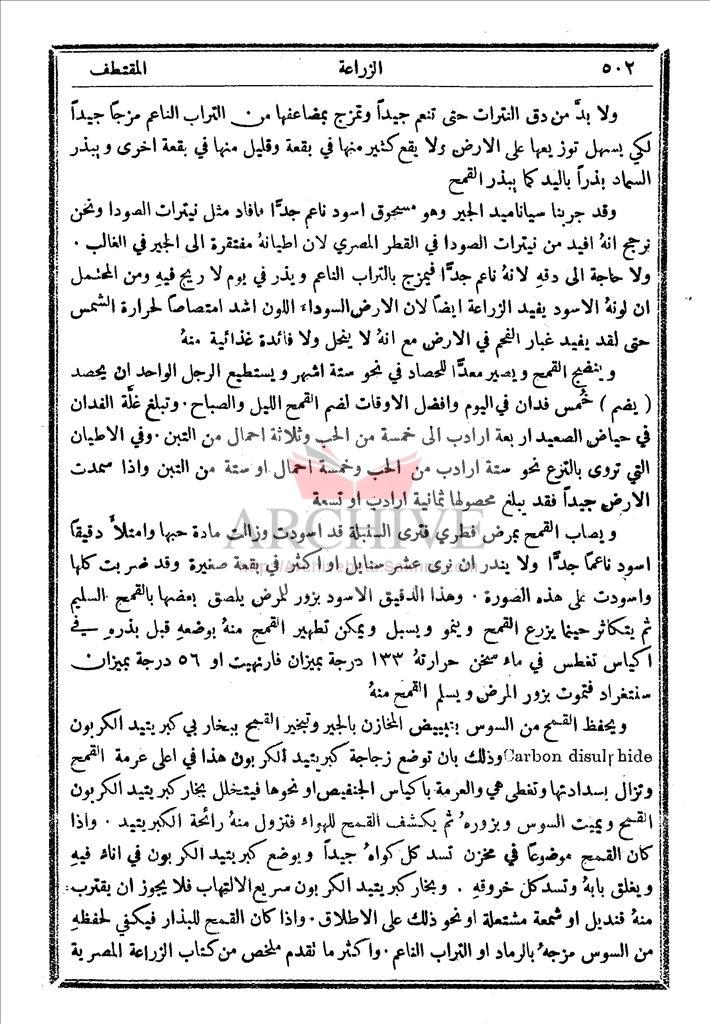 ٥٠٢ الزراعة المقتطف
ولا بدَّ من دق النترات حتى تنعم جيداً وتمزج بمضاعفها من التراب الناعم مزجاً جيداً
لكي يسهل توزيعها على الارض ولا يقع كثير منها في بقعة وقليل منها في بقعة اخرى ويبذر
السماد بذراً باليد كما يبذر القمح
وقد جربنا سياناميد الجير وهو مسحوق اسود ناعم جدًّا فافاد مثل نيترات الصودا ونحن
نرجح انهُ افيد من نيترات الصودا في القطر المصري لان اطيانهُ مفتقرة الى الجير في الغالب .
ولا حاجة الى دقهِ لانهُ ناعم جدًّا فيمزج بالتراب الناعم ويذر في يوم لا ريح فيهِ ومن المحتمل
ان لونهُ الاسود يفيد الزراعة ايضاً لان الارض السوداء اللون اشد امتصاصاً لحرارة الشمس
حتى لقد يفيد غبار الفحم في الارض مع انهُ لا ينحل ولا فائدة غذائية منهُ
وينضج القمح ويصير معدًّا للحصاد في نحو ستة اشهر ويستطيع الرجل الواحد ان يحصد
( يضم ) خُمس فدان في اليوم وافضل الاوقات لضم القمح الليل والصباح . وتبلغ غلَّة الفدان
في حياض الصعيد اربعة ارادب الى خمسة من الحب وثلاثة احمال من التبن . وفي الاطيان
التي تروى بالترع نحو ستة ارادب من الحب وخمسة احمال او ستة من التبن واذا سمدت
الارض جيداً فقد يبلغ محصولها ثمانية ارادب او تسعة
ويصاب القمح بمرض فطري فترى السنبلة قد اسودت وزالت مادة حبها وامتلأَ دقيقاً
اسود ناعماً جدًّا ولا يندر ان نرى عشر سنابل او اكثر في بقعة صغيرة وقد ضربت كلها
واسودت على هذه الصورة . وهذا الدقيق الاسود بزور للمرض يلصق بعضها بالقمح السليم
ثم يتكاثر حينما يزرع القمح وينمو ويسبل ويمكن تطهير القمح منهُ بوضعهِ قبل بذره في
اكياس تغطس في ماء سخن حرارتهُ ١٣٣ درجة بميزان فارنهيت او ٥٦ درجة بميزان
سنتغراد فتموت بزور المرض ويسلم القمح منهُ
ويحفظ القمح من السوس بتبييض المخازن بالجير وتبخير القمح ببخار بي كبريتيد الكربون
Carbon disulphide وذلك بان توضع زجاجة كبريتيد الكربون هذا في اعلى عرمة القمح
وتزال سدادتها وتغطى هي والعرمة باكياس الجنفيص او نحوها فيتخلل بخار كبريتيد الكربون
القمح ويميت السوس وبزوره ثم يكشف القمح للهواء فتزول منهُ رائحة الكبريتيد . واذا
كان القمح موضوعاً في مخزن تسد كل كواهُ جيداً ويوضع كبريتيد الكربون في اناء فيهِ
ويغلق بابهُ وتسد كل خروقهِ . وبخار كبريتيد الكربون سريع الالتهاب فلا يجوز ان يقترب
منهُ قنديل او شمعة مشتعلة او نحو ذلك على الاطلاق . واذا كان القمح للبذار فيكفي لحفظهِ
من السوس مزجهُ بالرماد او التراب الناعم . واكثر ما تقدم ملخص من كتاب الزراعة المصرية
ARCHIVE